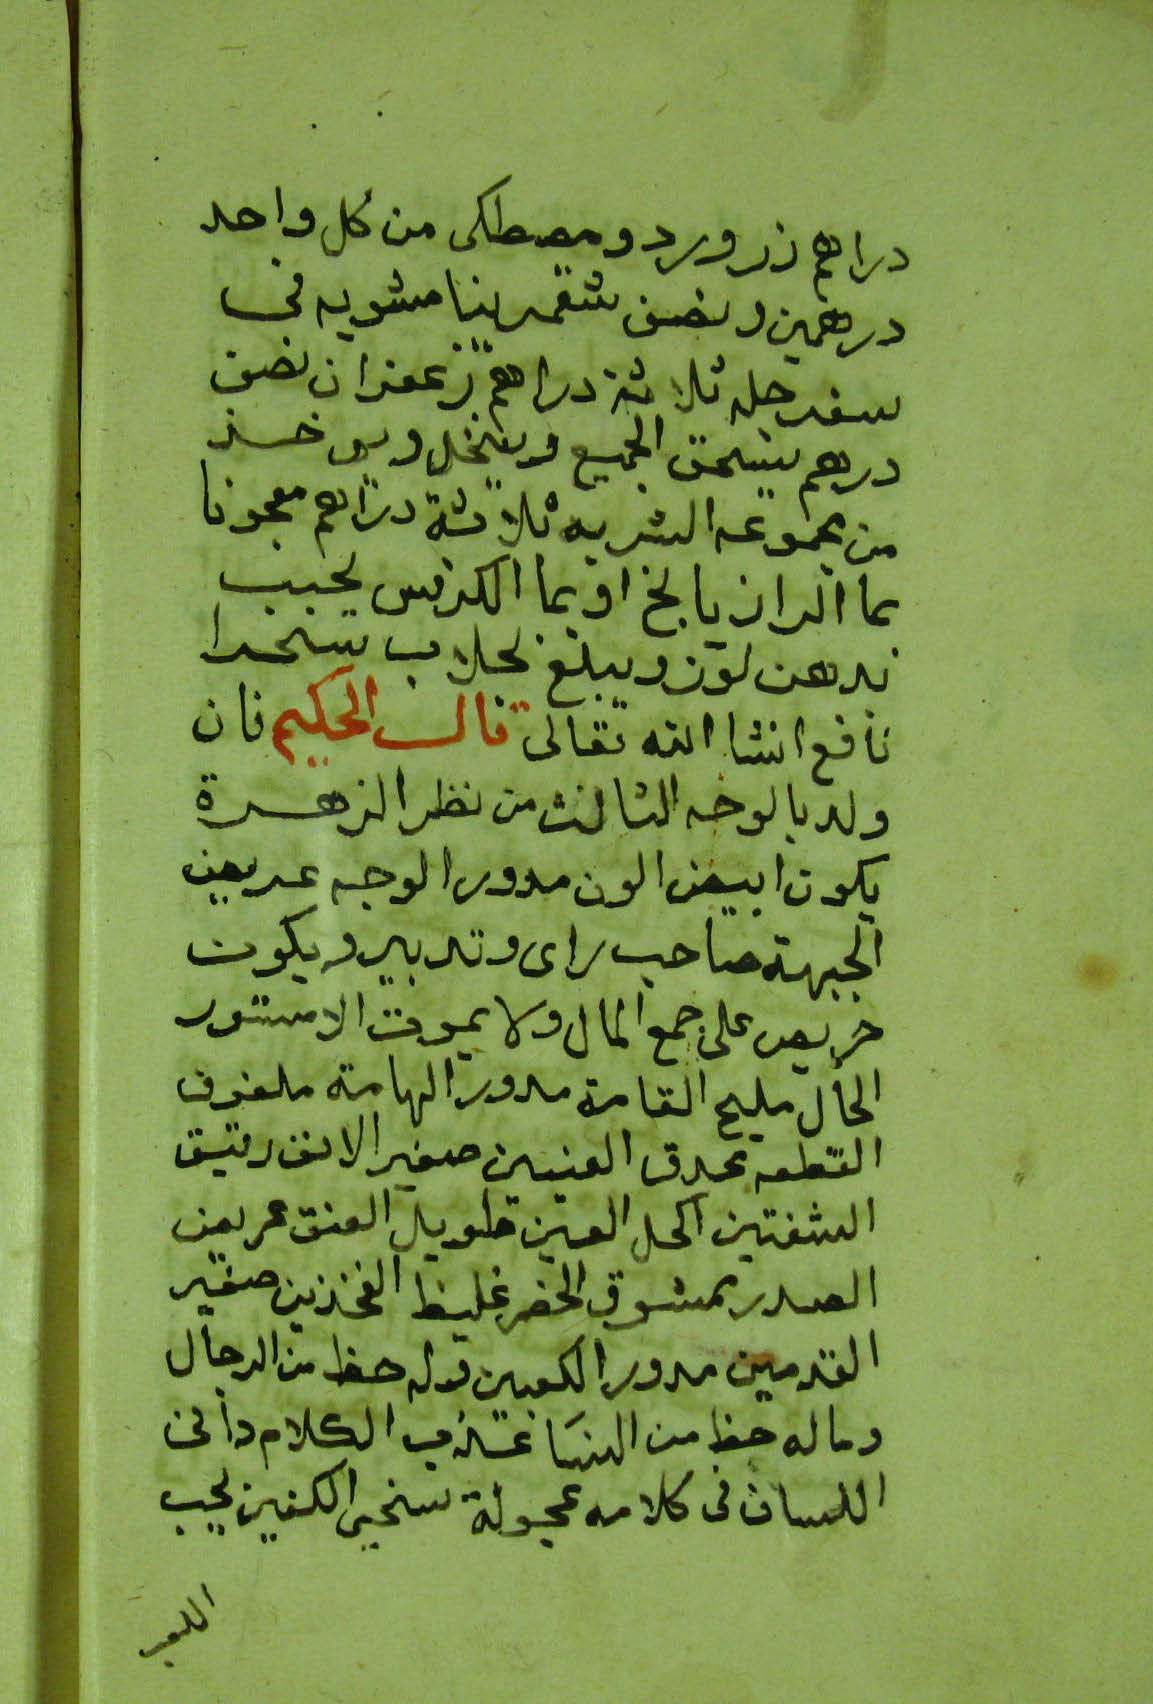 دراهم زر ورد ومصطلكى من كل واحد
درهمين ونصف سقمرينا مشويه في
سفرجله ثلاثة دراهم زعفران نصف
درهم يسحق الجميع وينخل ويوخذ
من مجموعه الشربه ثلاثة دراهم معجونا
بما الرازيانخ او بما الكرفس يحبب
بدهن لوز ويبلغ بجلاب
نافع انشا الله تعالى قال الحكيم فان
ولد بالوجه الثالث من نظر الزهرة
يكون ابيض الون مدور الوجه عريض
الجبهة صاحب راى وتدبير ويكون
حريص على جمع المال ولا يموت الا مستور
الحال مليح القامة مدور الهامة ملفوف
القطعه محدق العينين صغير الانف رقيق
الشفتين اكحل العين طويل العنق عريض
الصدر ممشوق الخصر غليظ الفخذين صغير
القدمين مدور الكعبين وله حظ من الرجال
وماله حظ من النسا عذب الكلام دافى
اللسان في كلامه عجولة سخي الكفين يحب